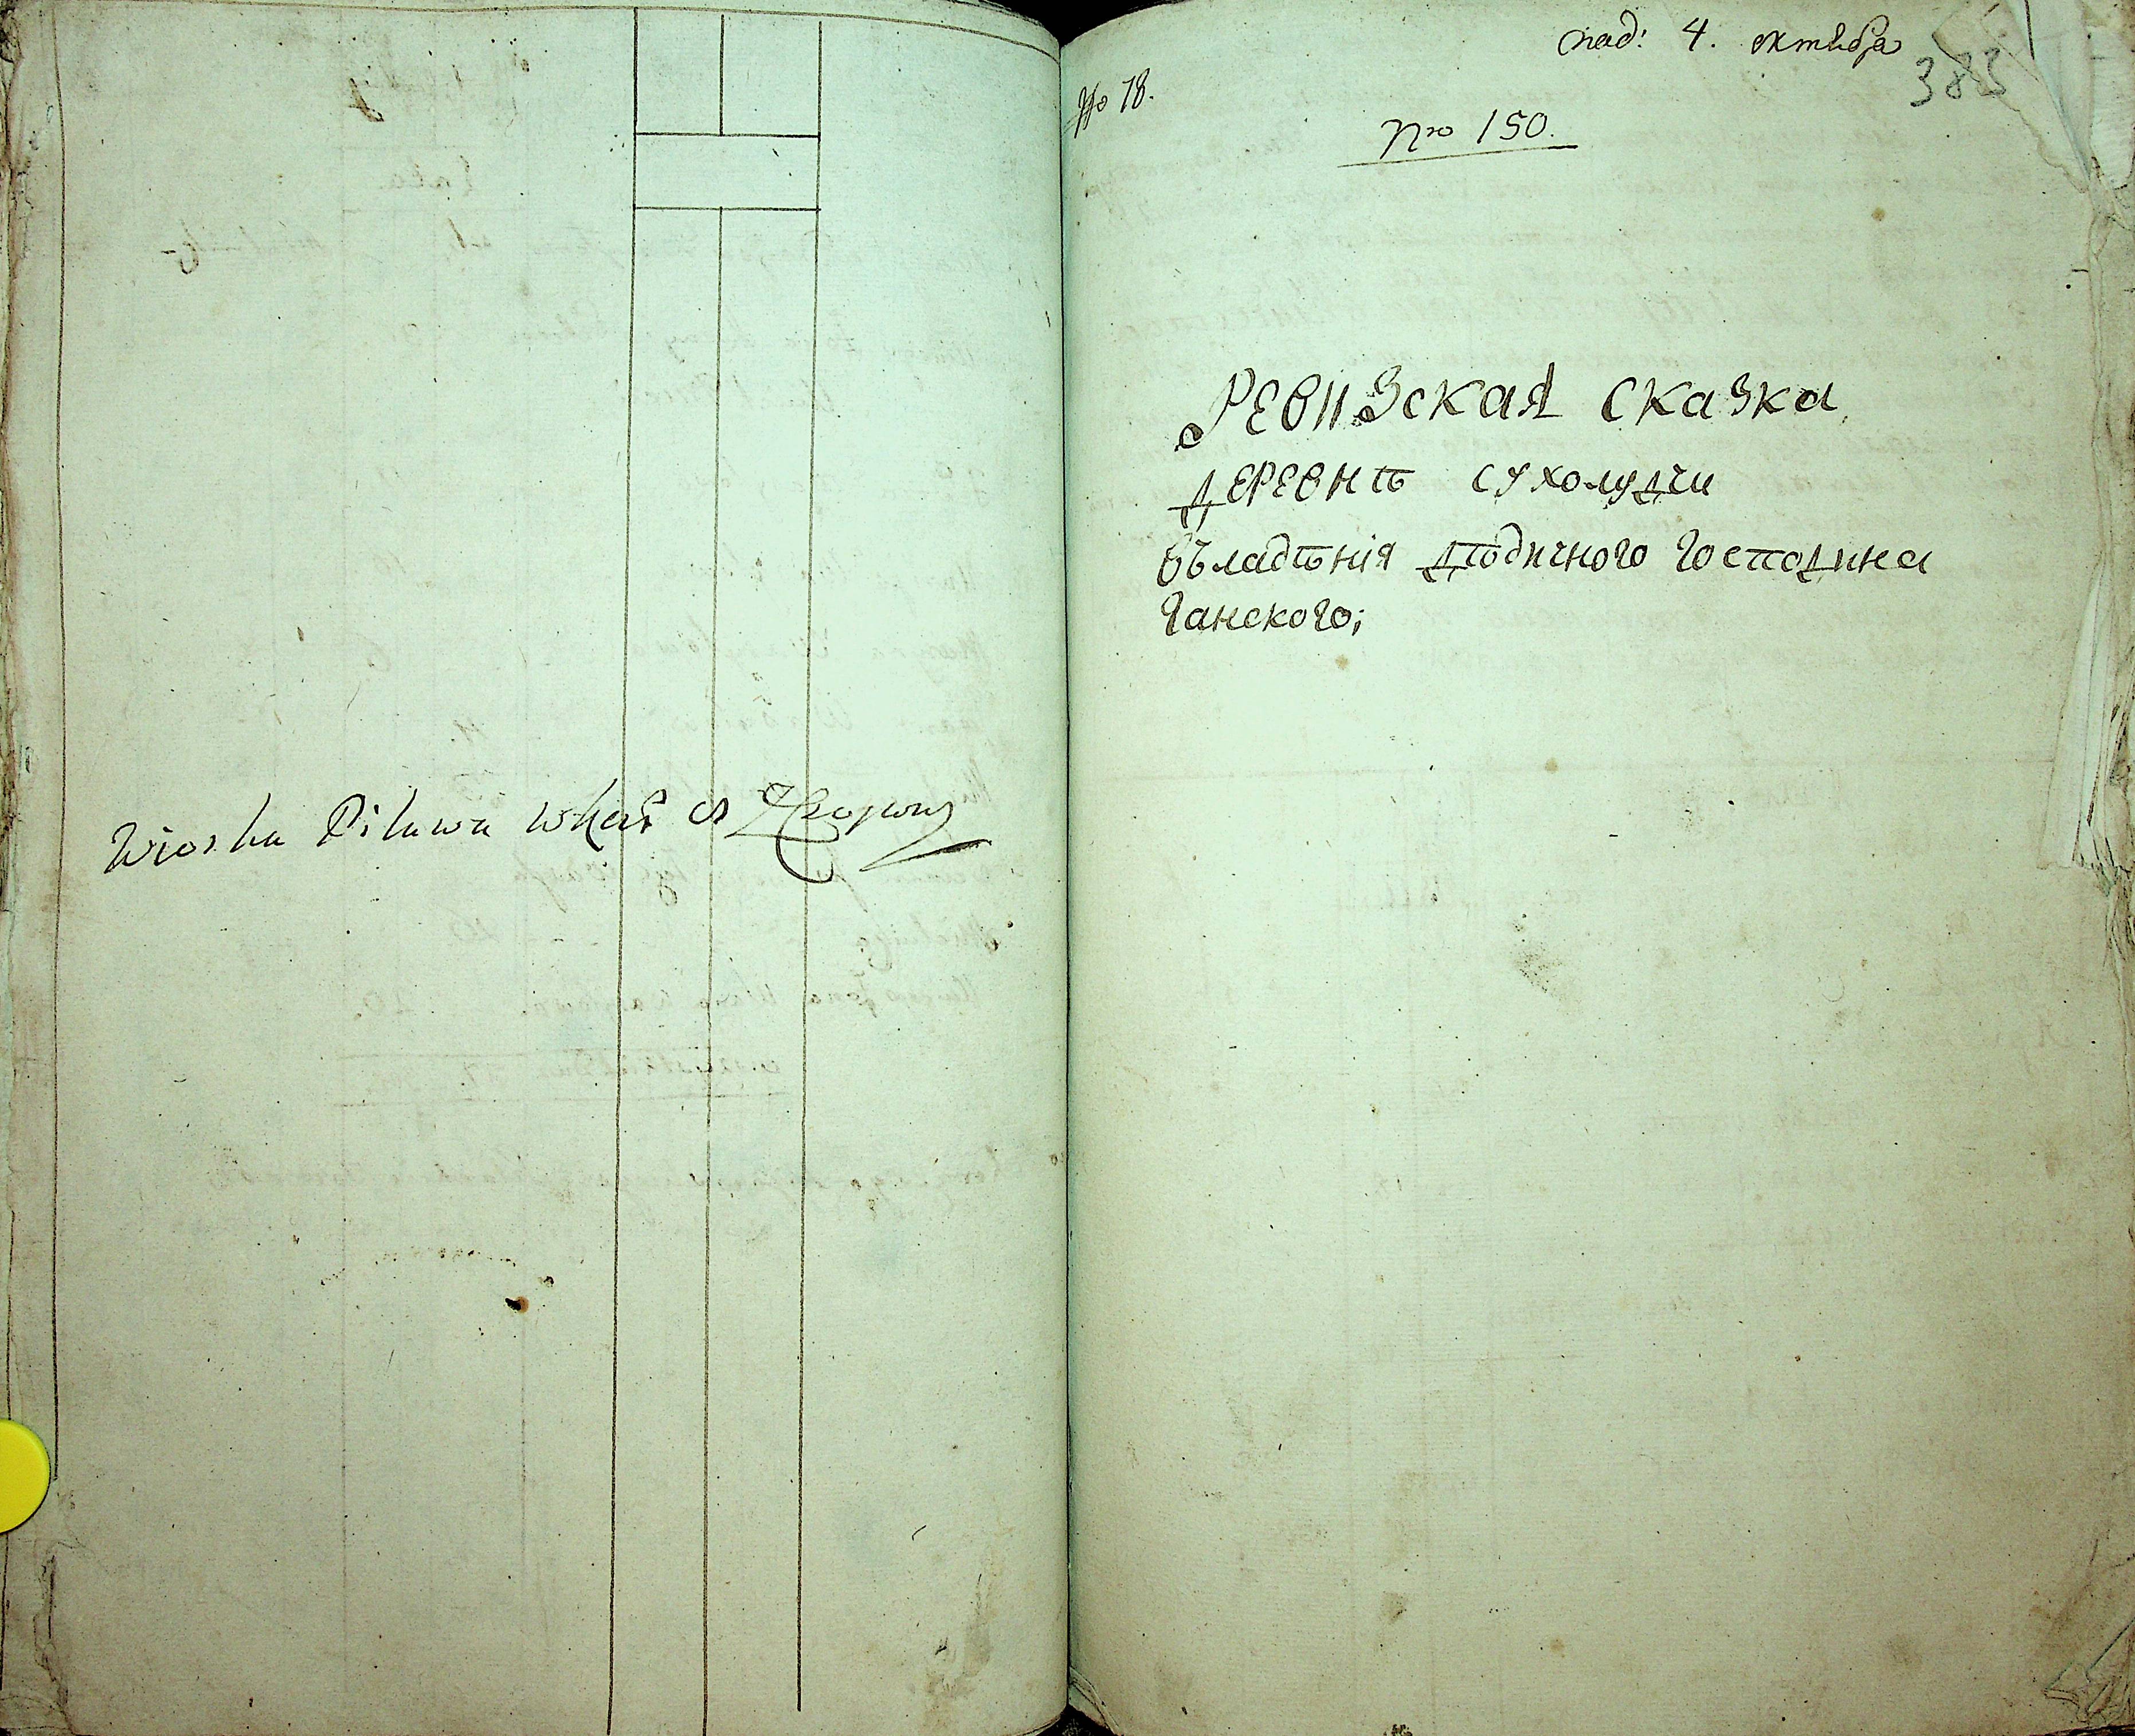 Wioska Pilawa
над: 4. октября
383
No 18.
Nro 150.
Ревизская сказка
деревнѣ сухолучи
Въладѣнія дѣдичного господина
Ганского;